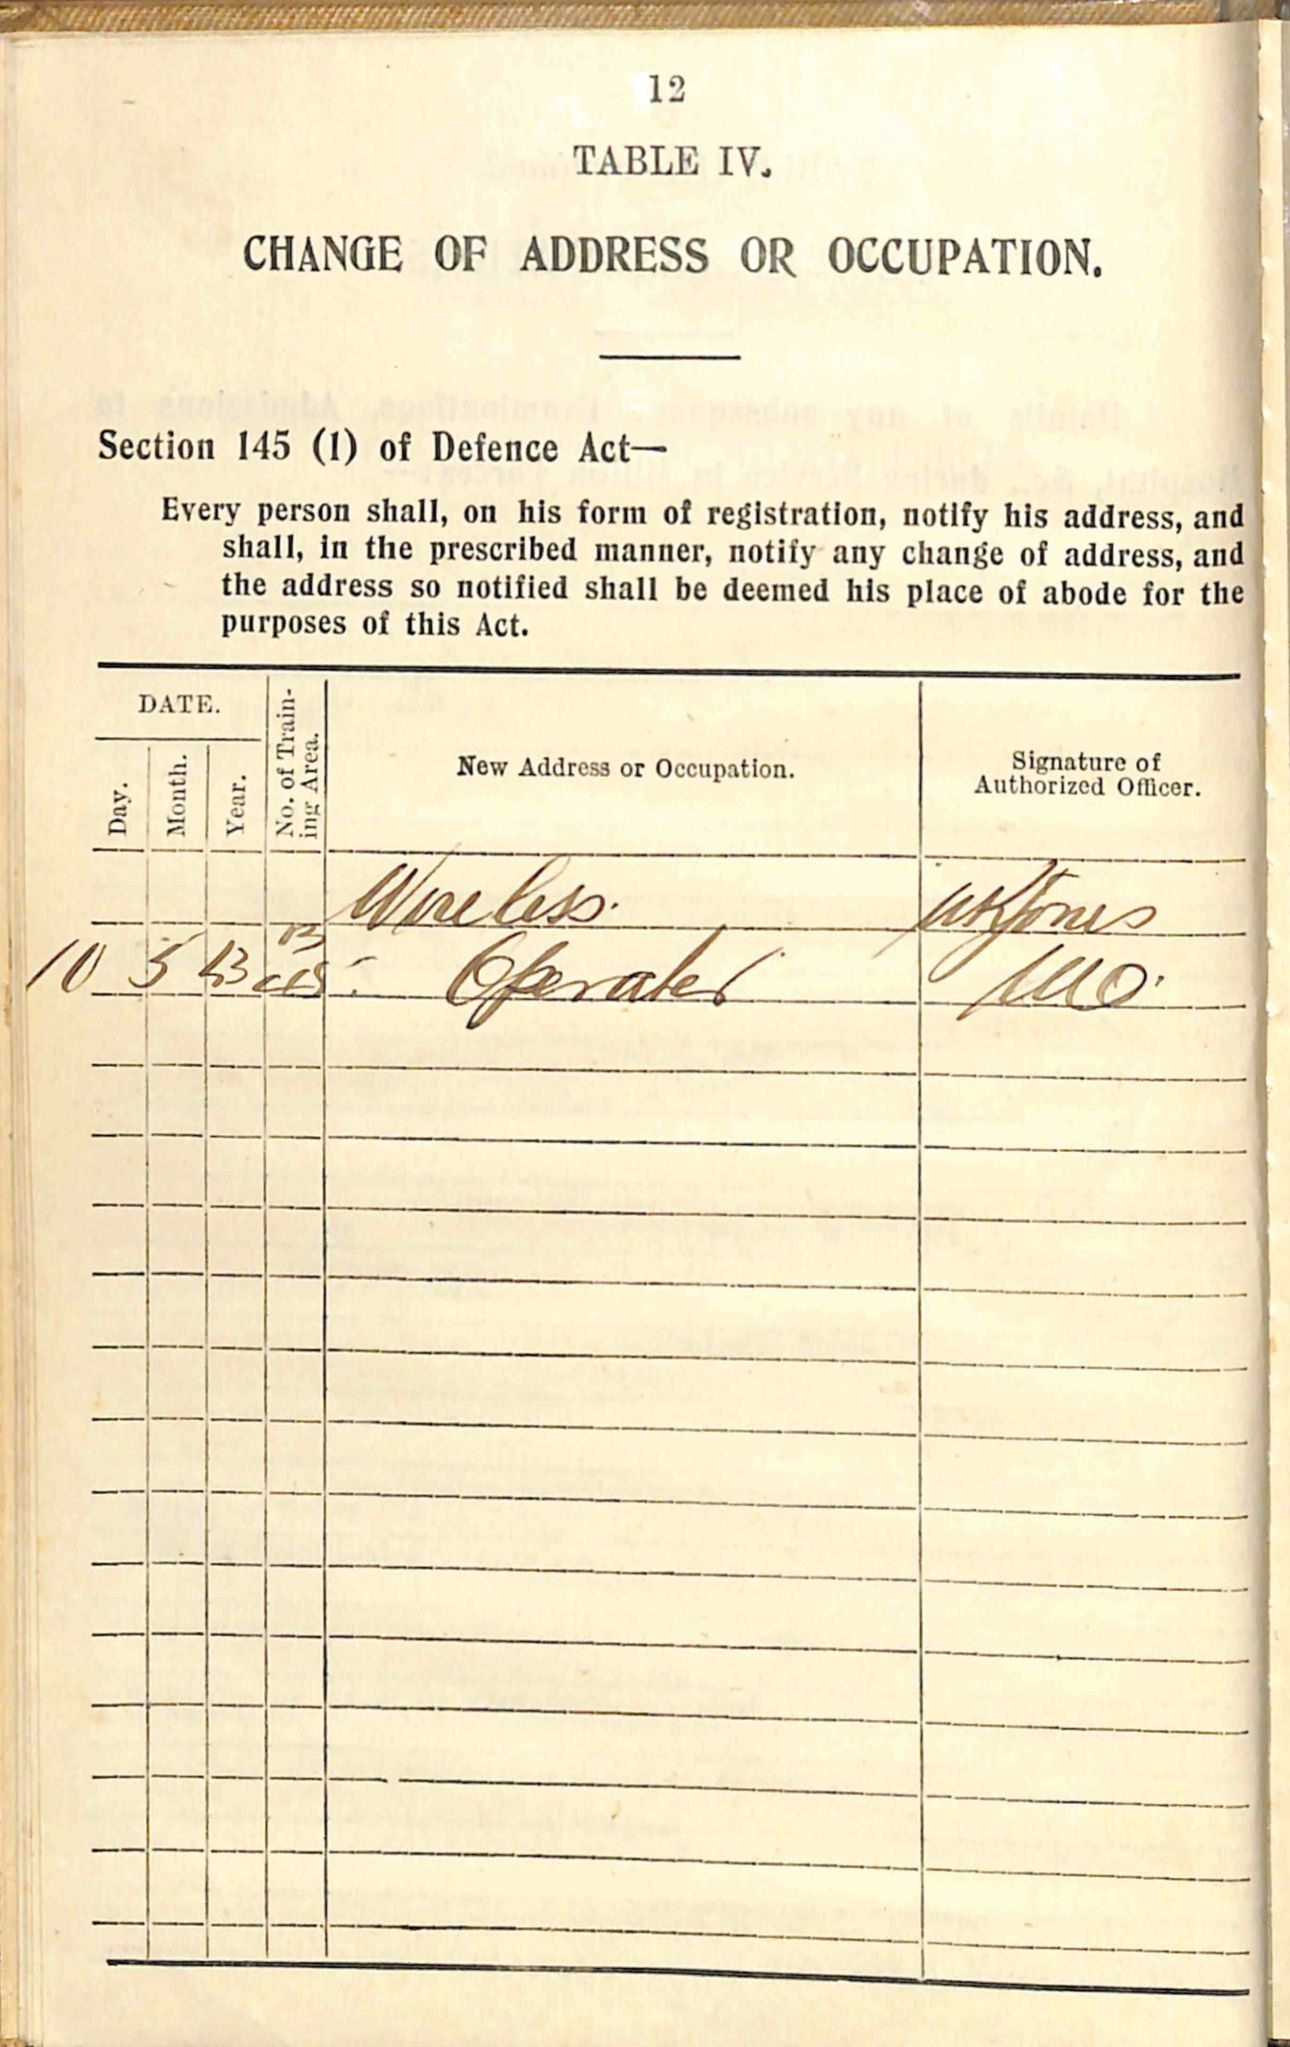 12
TABLE IV.
CHANGE OF ADDRESS OR OCCUPATION.
Section 145 (1) of Defence Act—
Every person shall, on his form of registration, notify his address, and
shall, in the prescribed manner, notify any change of address, and
the address so notified shall be deemed his place of abode for the
purposes of this Act.
DATE.
Day.
Month.
Year.
No. of Train-
ing Area.
New Address or Occupation.
Signature of
Authorized Officer.
Wireless. Jones
10 5 13 Operator